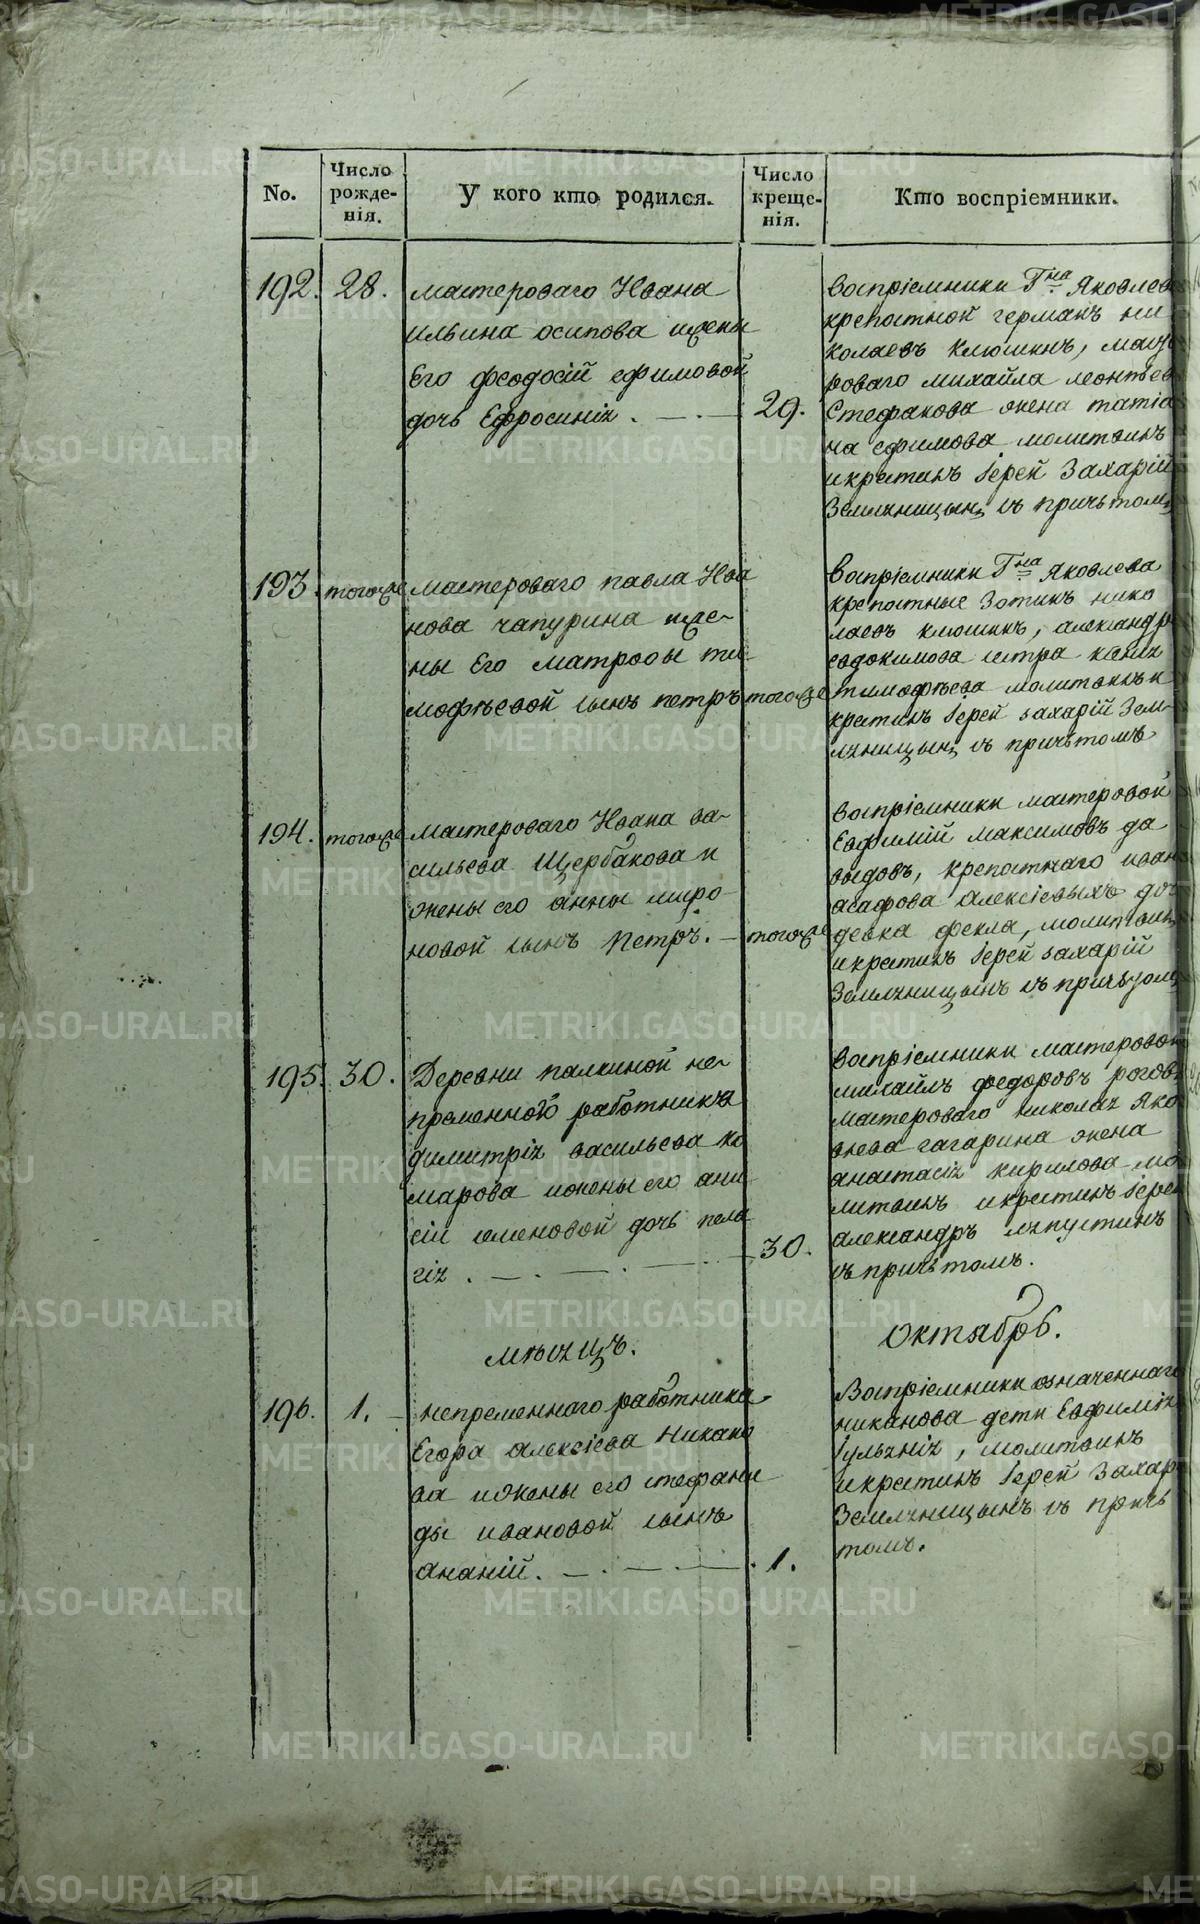 No.
Число рожде-нія.
У кого кто родился.
Число креще-нія.
Кто воспріемники.
192. 28.
мастероваго Ивана
ильина осипова ижены
Его феодосій ефимовой
дочь Ефросинія.
29.
воспріемники Гна Яковлева
крепостной германъ ни
колаевъ клюшинъ, масте
роваго михайла леонтьева
Стефанова жена татіа
на ефимова молитвилъ
икрестилъ Іерей Захарій
Земляницынъ съ причьтомъ
193. тогоже
мастероваго павла Ива
нова чапурина иже-
ны Его матроны ти-
мофѣевой сынъ петръ
тогоже
воспріемники Гна Яковлева
крепостные Зотикъ нико
лаевъ клюшинъ, александра
евдокимова сестра ксенія
тимофѣева молитвилъ и
крестилъ Іерей захарій Зем-
ляницынъ съ причьтомъ
194. тогоже
мастероваго Ивана ва-
сильева Щербакова и
жены его анны миро-
новой сынъ Петръ.
тогоже
воспріемники мастеровой
Евфимій максимовъ да
выдовъ, крепостнаго ивана
асафова алексіевыхъ дочь
девка фекла, молитвилъ
икрестилъ Іерей захарій
Земляницынъ съ причьтомъ
195. 30.
Деревни палкиной не-
пременного работника
димитрія васильева ко
марова ижены его ани
сіи семеновой дочь пела
гія.
30.
воспріемники мастеровой
михайлъ федоровъ роговъ
мастероваго николая яко
влева гагарина жена
анастасія кирилова мо
литвилъ икрестилъ Іерей
александръ ляпустинъ
съ причьтомъ.
мѣсяцъ.
октябрь.
196. 1.
непременнаго работника
Егора алексіева никано
ва ижены его стефани
ды ивановой сынъ
ананій.
1.
Воспріемники означеннаго
никанова дети Евфимія
Іульянія, молитвилъ
икрестилъ Іерей Захарій
Земляницынъ съ причь
томъ.
METRIKI.GASO-URAL.RU